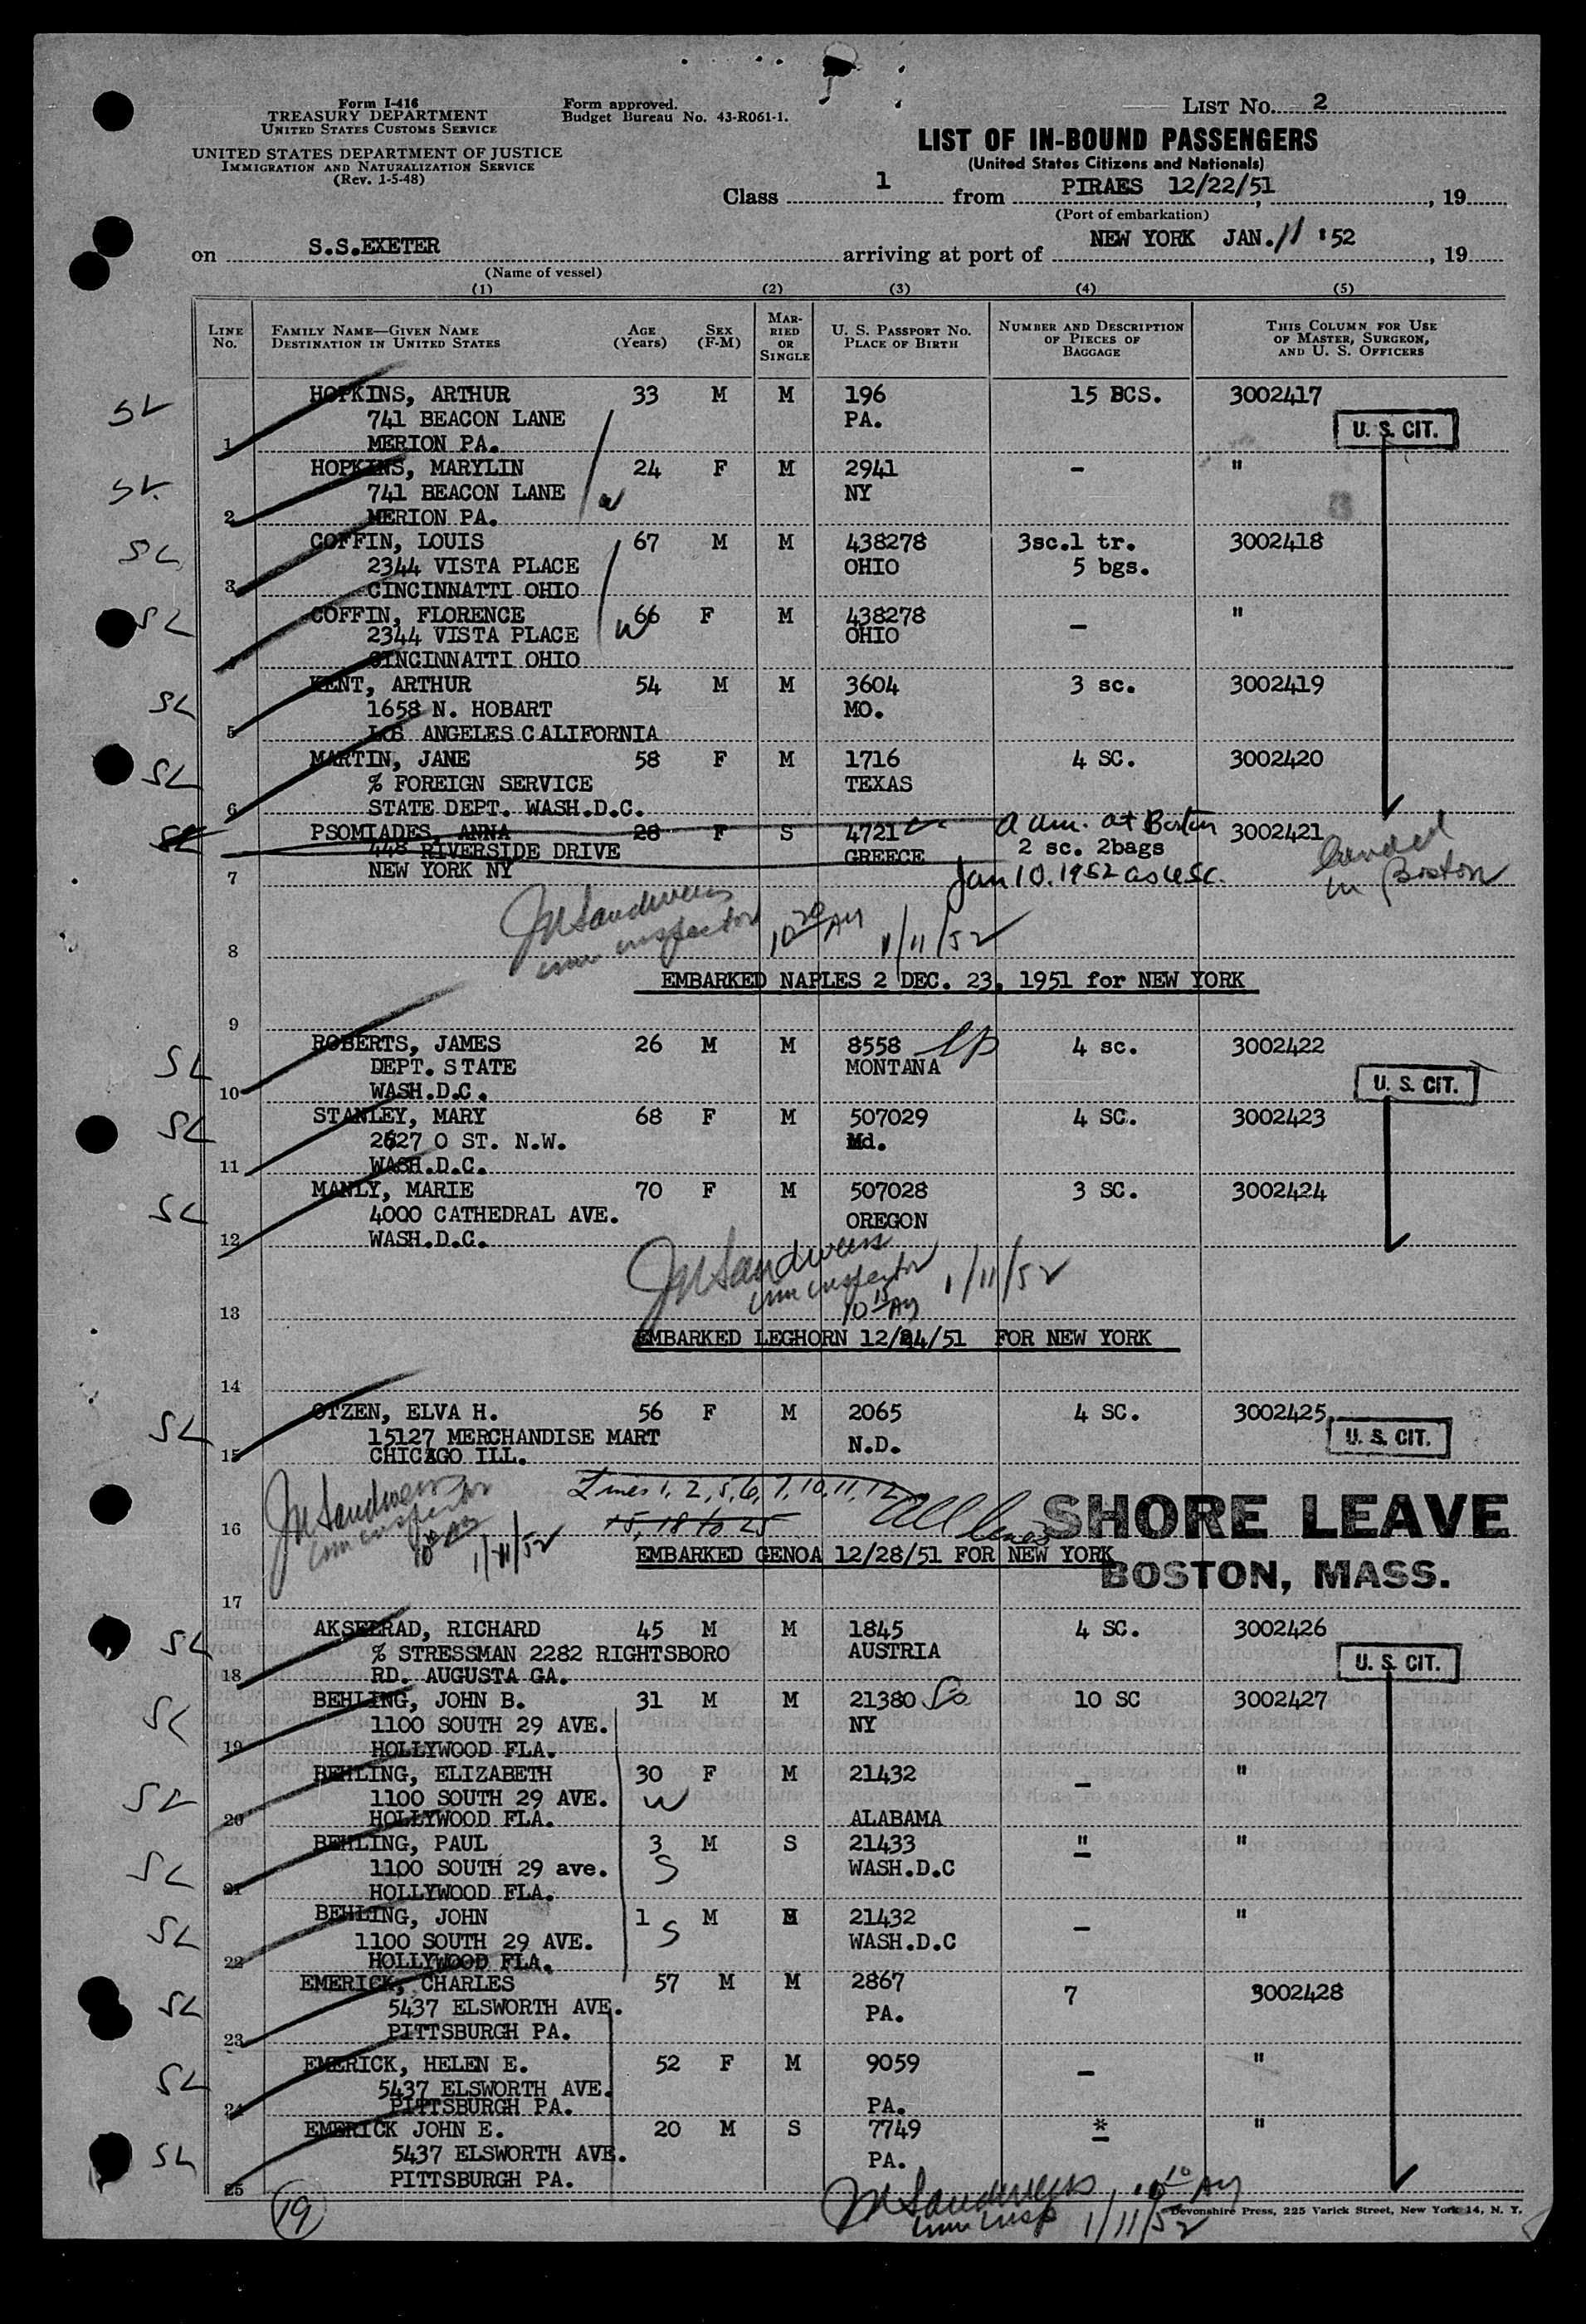 Form I-416
TREASURY DEPARTMENT
UNITED STATES CUSTOMS SERVICE
UNITED STATES DEPARTMENT OF JUSTICE
IMMIGRATION AND NATURALIZATION SERVICE
(Rev. 1-5-48)
Form approved.
Budget Bureau No. 43-R061-1.
LIST No. 2
LIST OF IN-BOUND PASSENGERS
(United States Citizens and Nationals)
Class 1 from PIRAES 12/22/51, 19
(Port of embarkation)
on S.S.EXETER arriving at port of NEW YORK JAN. 11 '52, 19
(Name of vessel)
(1) (2) (3) (4) (5)
LINE No. FAMILY NAME—GIVEN NAME DESTINATION IN UNITED STATES AGE (Years) SEX (F-M) MARRIED OR SINGLE U. S. PASSPORT No. PLACE OF BIRTH NUMBER AND DESCRIPTION OF PIECES OF BAGGAGE THIS COLUMN FOR USE OF MASTER, SURGEON, AND U. S. OFFICERS
SL HOPKINS, ARTHUR 33 M M 196 15 BCS. 3002417
741 BEACON LANE PA. U. S. CIT.
1 MERION PA.
SL HOPKINS, MARYLIN 24 F M 2941 - "
741 BEACON LANE W NY
2 MERION PA.
SL COFFIN, LOUIS 67 M M 438278 3sc.1 tr. 3002418
2344 VISTA PLACE OHIO 5 bgs.
3 CINCINNATTI OHIO
SL COFFIN, FLORENCE 66 F M 438278 - "
2344 VISTA PLACE W OHIO
4 CINCINNATTI OHIO
SL KENT, ARTHUR 54 M M 3604 3 sc. 3002419
1658 N. HOBART MO.
5 LOS ANGELES CALIFORNIA
SL MARTIN, JANE 58 F M 1716 4 SC. 3002420
% FOREIGN SERVICE TEXAS
6 STATE DEPT. WASH.D.C.
SL PSOMIADES, ANNA 28 F S 4721 adm. at Boston 3002421
448 RIVERSIDE DRIVE GREECE 2 sc. 2bags landed
7 NEW YORK NY Jan 10. 1952 as USC. in Boston
JM Sandweiss
8 imm inspector 10 20 AM 1/11/52
EMBARKED NAPLES 2 DEC. 23, 1951 for NEW YORK
9
SL ROBERTS, JAMES 26 M M 8558 4 sc. 3002422
DEPT. STATE MONTANA
10 WASH.D.C. U. S. CIT.
SL STANLEY, MARY 68 F M 507029 4 SC. 3002423
2627 O ST. N.W. Md.
11 WASH.D.C.
SL MANLY, MARIE 70 F M 507028 3 SC. 3002424
4000 CATHEDRAL AVE. OREGON
12 WASH.D.C.
JM Sandweiss
imm inspector 1/11/52
13 10 15 AM
EMBARKED LEGHORN 12/24/51 FOR NEW YORK
14
SL OTZEN, ELVA H. 56 F M 2065 4 SC. 3002425
15127 MERCHANDISE MART N.D. U. S. CIT.
15 CHICAGO ILL.
JM Sandweiss Lines 1, 2, 5, 6, 7, 10, 11, 12
imm inspector 15, 18 to 25 All lines
16 1/11/52
SHORE LEAVE
EMBARKED GENOA 12/28/51 FOR NEW YORK
BOSTON, MASS.
17
SL AKSELRAD, RICHARD 45 M M 1845 4 SC. 3002426
% STRESSMAN 2282 RIGHTSBORO AUSTRIA U. S. CIT.
18 RD. AUGUSTA GA.
SL BEHLING, JOHN B. 31 M M 21380 10 SC 3002427
1100 SOUTH 29 AVE. NY
19 HOLLYWOOD FLA.
SL BEHLING, ELIZABETH 30 F M 21432 - "
1100 SOUTH 29 AVE. W
20 HOLLYWOOD FLA. ALABAMA
SL BEHLING, PAUL 3 M S 21433 " "
1100 SOUTH 29 ave. S WASH.D.C
21 HOLLYWOOD FLA.
SL BEHLING, JOHN 1 M 21432 - "
1100 SOUTH 29 AVE. S WASH.D.C
22 HOLLYWOOD FLA.
SL EMERICK, CHARLES 57 M M 2867 7 3002428
5437 ELSWORTH AVE. PA.
23 PITTSBURGH PA.
SL EMERICK, HELEN E. 52 F M 9059 - "
5437 ELSWORTH AVE.
24 PITTSBURGH PA. PA.
SL EMERICK JOHN E. 20 M S 7749 * "
5437 ELSWORTH AVE. PA.
25 PITTSBURGH PA.
19 JM Sandweiss 10 10 AM
imm insp 1/11/52
Devonshire Press, 225 Varick Street, New York 14, N. Y.